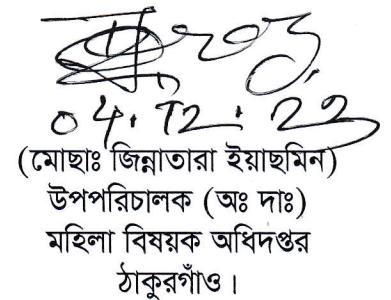 04.12.23
(মোছাঃ জিন্নাতারা ইয়াছমিন)
উপপরিচালক (অঃ দাঃ)
মহিলা বিষয়ক অধিদপ্তর
ঠাকুরগাঁও।